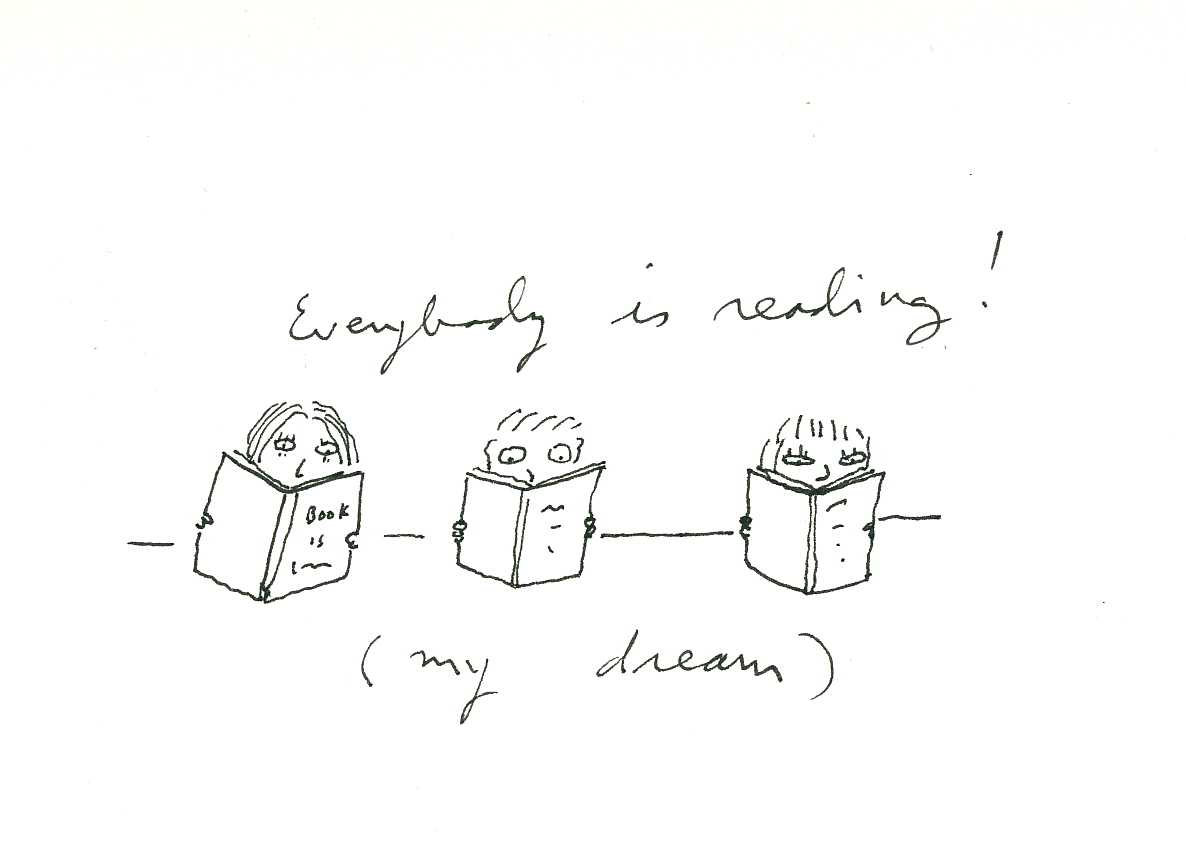 Everybody is reading!
BOOK
is
(my dream)